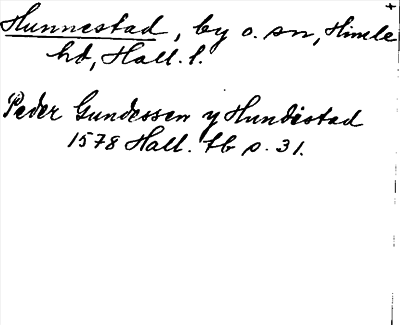 Hunnestad, by o. sn, Himle
hd, Hall. l.
Peder Gundessen y Hundistad
1578 Hall. tb s. 31.